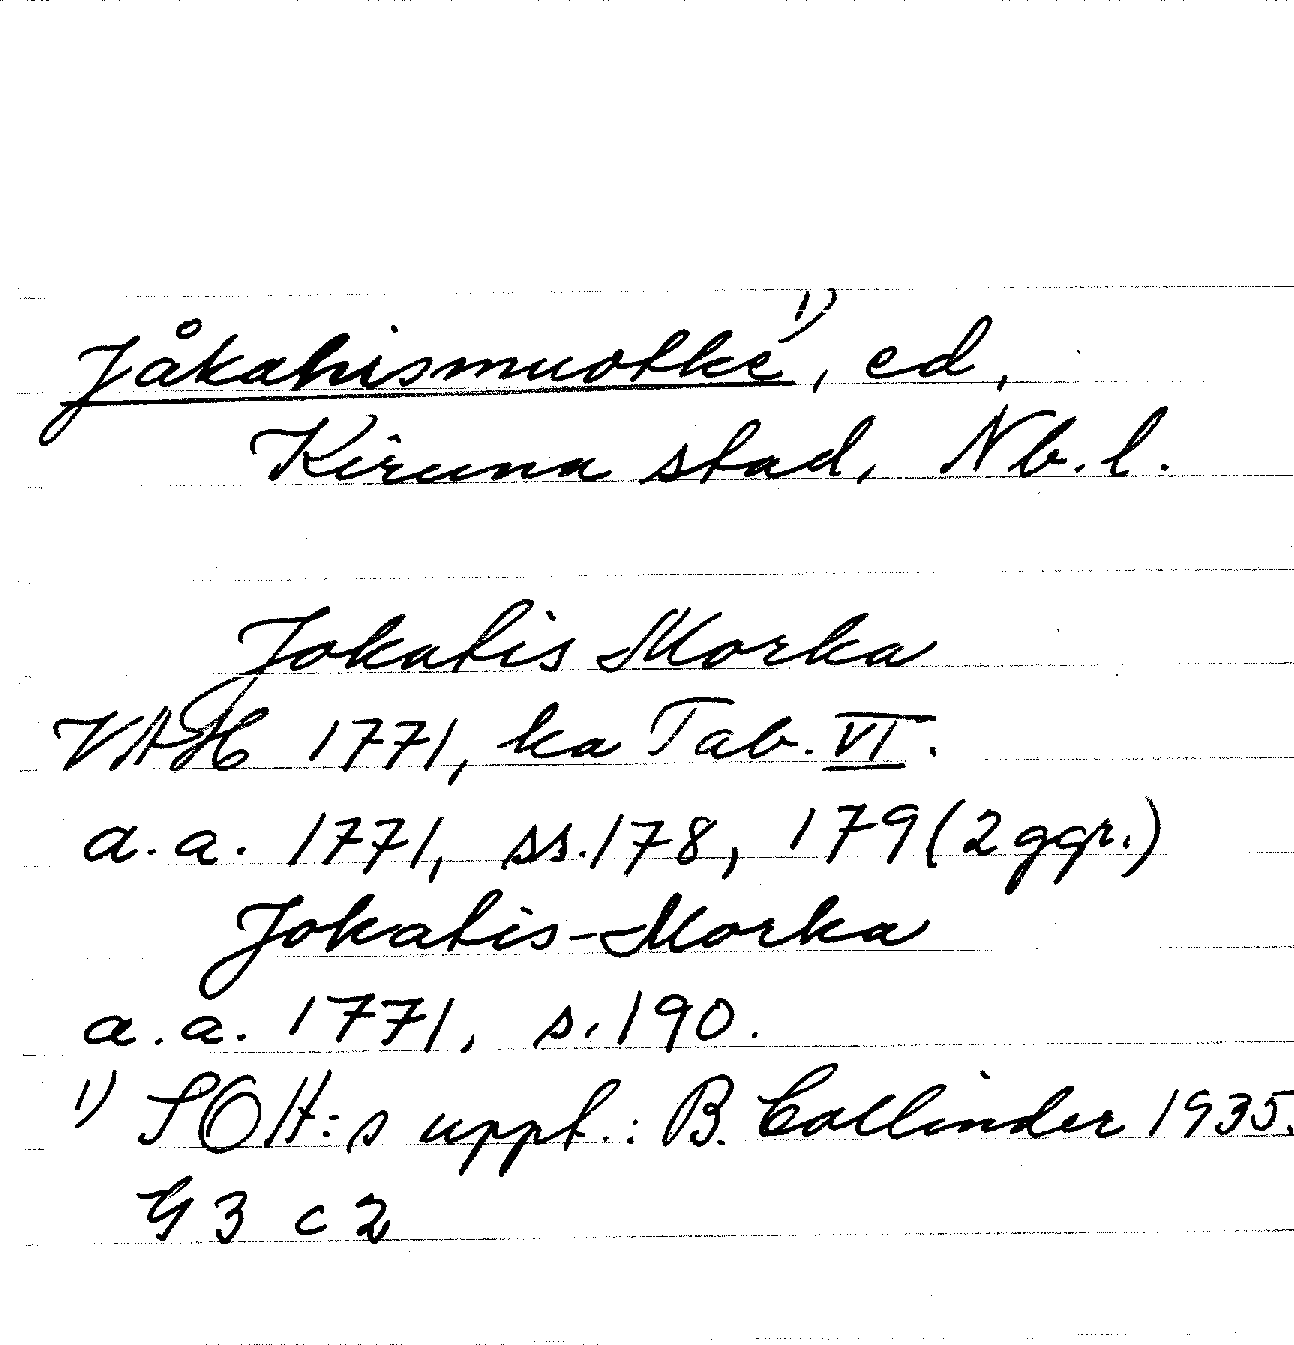 Jåkahismuotke¹⁾, ed,
Kiruna stad, Nb. l.
Jokatis Morka
VAH 1771, ka Tab. VI.
a. a. 1771, ss. 178, 179 (2 ggr.)
Jokatis-Morka
a. a. 1771, s. 190.
1) SOH:s uppt.: B. Collinder 1935.
G 3 c 2